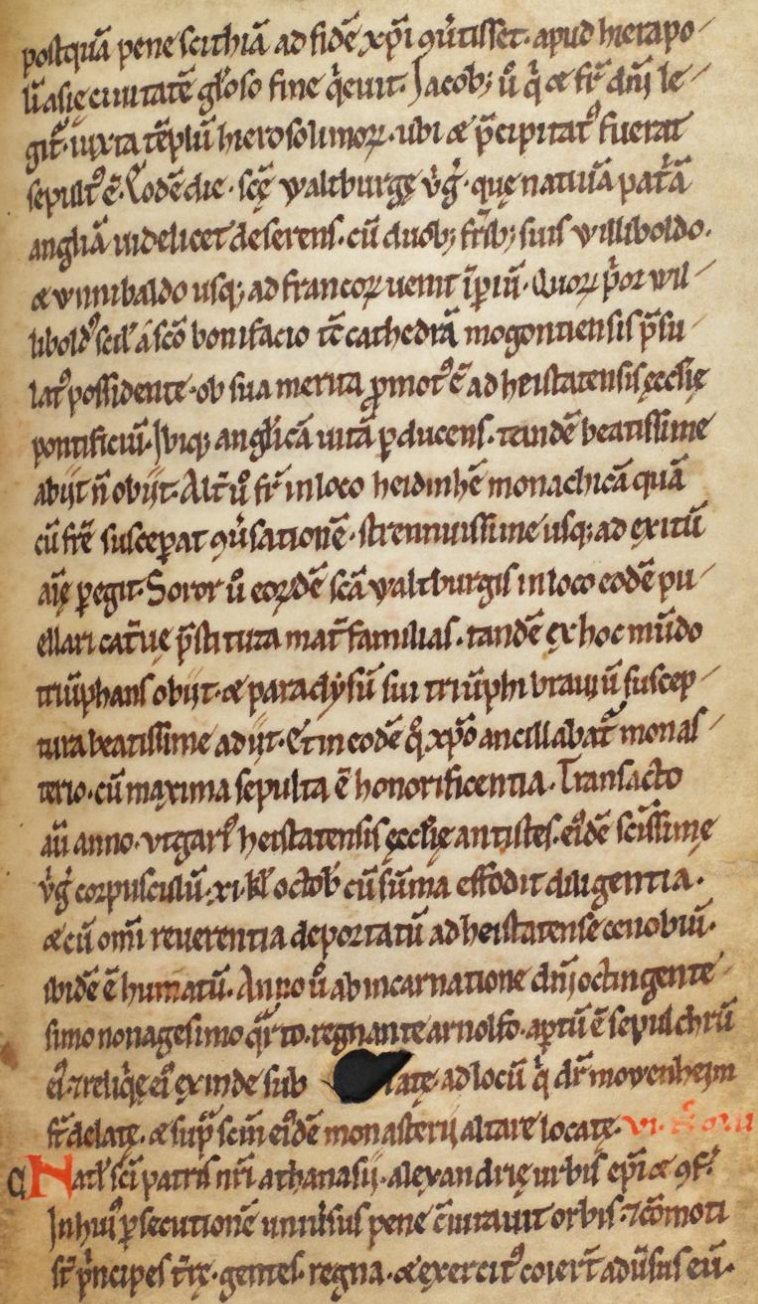 postquā pene scithiā ad fidē xp̄i ꝯu̓tisset. apud hierapo-
li asię ciuitatē gl̓oso fine q̓euit. Jacobꝫ u̓ q̓ & fr̄ dn̄j le-
git̄. iuxta tēplū hierosolimoꝝ. ubi & p̄cipitatꝰ fuerat
sepultꝰ ē. Eodē die. scę̄ waltburgę v̓g̓. quę natiuā pat̓ā
angliā uidelicet deserens. cū duobꝫ fr̄ibꝫ suis williboldo.
& vnnibaldo usqꝫ ad francoꝝ uenit īpiū. Quoꝝ p̓or wil-
liboldꝰ scil̓ á sc̄o bonifacio tc̄ cathedrā mogontiensis p̄su-
latꝰ possidente. ob sua merita ꝓmotꝰ ē ad heistatensis ęccl̄ię
pontificiū. Ibiqꝫ angl̓icā uitā ꝑducens. tandē beatissime
abijt n̄ obijt. Alt̄ u̓ fr̄ in loco heidinhē monachicā quā
cū fr̄e susceꝑat ꝯu̓sationē. strennuissime usqꝫ ad exitū
aīę ꝑegit. Soror u̓ eoꝝdē sc̄a waltburgis in loco eodē pu-
ellari cat̄uę p̄stituta mat̄familias. tandē ex hoc mūdo
triūphans obijt. & paradẏsū sui triūphi brauiū suscep-
tura beatissime adijt. Et in eodē q̊ xp̄o ancillabat̄ monas-
terio. cū maxima sepulta ē honorificentia. Transacto
aū anno. vtgarꝰ heistatensis ęccl̄ię antistes. eiꝰdē sc̄issimę
v̓g̓ corpusculū. xi. kl̓ octob̄ cū sūma effodit diligentia.
& cū om̄i reuerentia deportatū ad heistatense cenobiū.
ibidē ē humatū. Anno u̓ ab incarnatione dn̄j octingente-
simo nonagesimo q̓rto. regnante arnolfo. aptū ē sepulchrū
eiꝰ. ⁊ reliq̓ę eiꝰ exinde sub latę. ad locū q̓ dr̄ mowenheim
st̄ delatę. & sup̄ sc̄m eiꝰdē monasterij altare locatę.
Natl̓ sc̄i patris nr̄i athanasij. alexandrię urbis ep̄i & ꝯf.
In huiꝰ ꝑsecutionē uniu̓sus pene ꝯiurauit orbis. ⁊ cōmoti
st̄ p̓ncipes t̄rę. gentes. regna. & exercitꝰ coiert̄ adu̓sus eū.